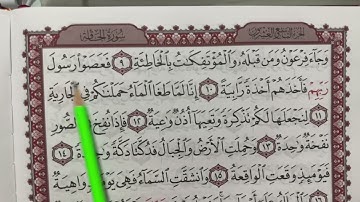 سورة الحاقة
وَجَآءَ فِرْعَوْنُ وَمَن قَبْلَهُۥ وَٱلْمُؤْتَفِكَٰتُ بِٱلْخَاطِئَةِ ٩ فَعَصَوْا۟ رَسُولَ
رَبِّهِمْ فَأَخَذَهُمْ أَخْذَةً رَّابِيَةً ١٠ إِنَّا لَمَّا طَغَا ٱلْمَآءُ حَمَلْنَٰكُمْ فِى ٱلْجَارِيَةِ
١١ لِنَجْعَلَهَا لَكُمْ تَذْكِرَةً وَتَعِيَهَآ أُذُنٌ وَٰعِيَةٌ ١٢ فَإِذَا نُفِخَ فِى ٱلصُّورِ
نَفْخَةٌ وَٰحِدَةٌ ١٣ وَحُمِلَتِ ٱلْأَرْضُ وَٱلْجِبَالُ فَدُكَّتَا دَكَّةً وَٰحِدَةً ١٤
فَيَوْمَئِذٍ وَقَعَتِ ٱلْوَاقِعَةُ ١٥ وَٱنشَقَّتِ ٱلسَّمَآءُ فَهِىَ يَوْمَئِذٍ وَاهِيَةٌ
١٦